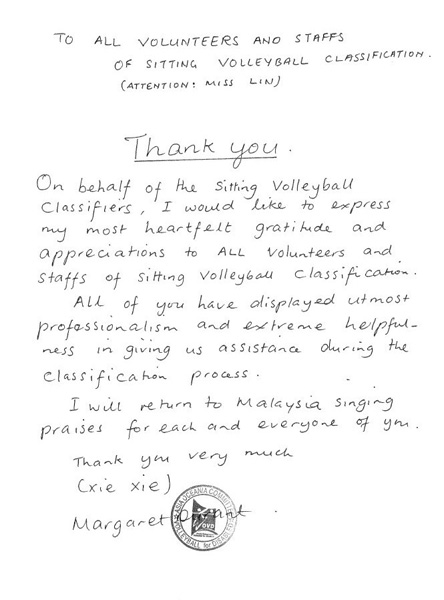 TO ALL VOLUNTEERS AND STAFFS
OF SITTING VOLLEYBALL CLASSIFICATION.
(ATTENTION: MISS LIN)
Thank you.
On behalf of the Sitting Volleyball
Classifiers, I would like to express
my most heartfelt gratitude and
appreciations to ALL Volunteers and
staffs of sitting volleyball classification.
All of you have displayed utmost
professionalism and extreme helpful-
ness in giving us assistance during the
classification process.
I will return to Malaysia singing
praises for each and everyone of you.
Thank you very much
(xie xie)
Margaret
ASIA OCEANIA
VOLLEYBALL for